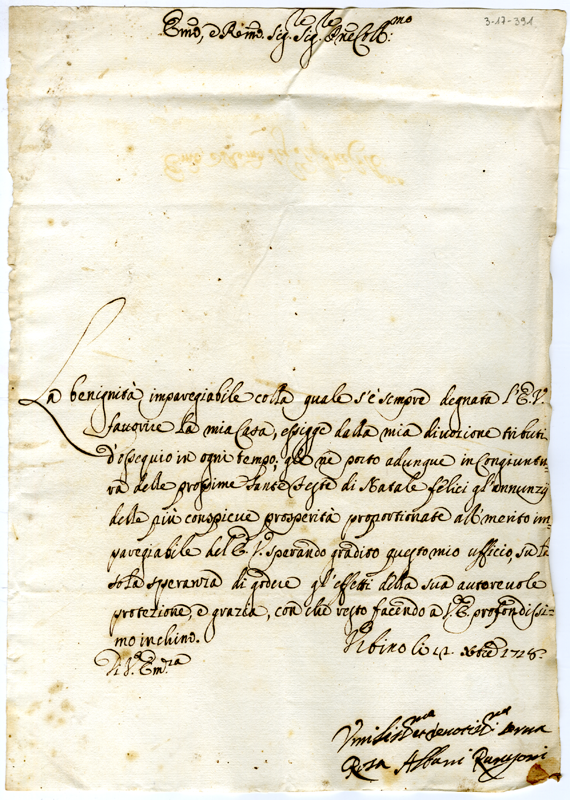 3-17-391
Emo, e Remo. Sig.le Sig.le Pne Coll:mo
La benignità imparegiabile colla quale s'è sempre degnata l'E.V.
favorire la mia Casa, esigge dalla mia divozione tributi
d'ossequio in ogni tempo; gle ne porto adunque in Congiuntu-
ra delle prossime Sante Feste di Natale felici gl'annunzÿ
delle più conspicue prosperità proportionate al merito im-
paregiabile del E.V. Sperando gradito questo mio ufficio, su la
sola speranza di godere gl'effetti della sua autorevole
protezione, e grazia, con che resto facendo a V.E. profondissi-
mo inchino.
Urbino li 12. Xbre 1728.
Di V.a Em.za
Umiliss.ma et devotiss.ma serva
Rosa Albani